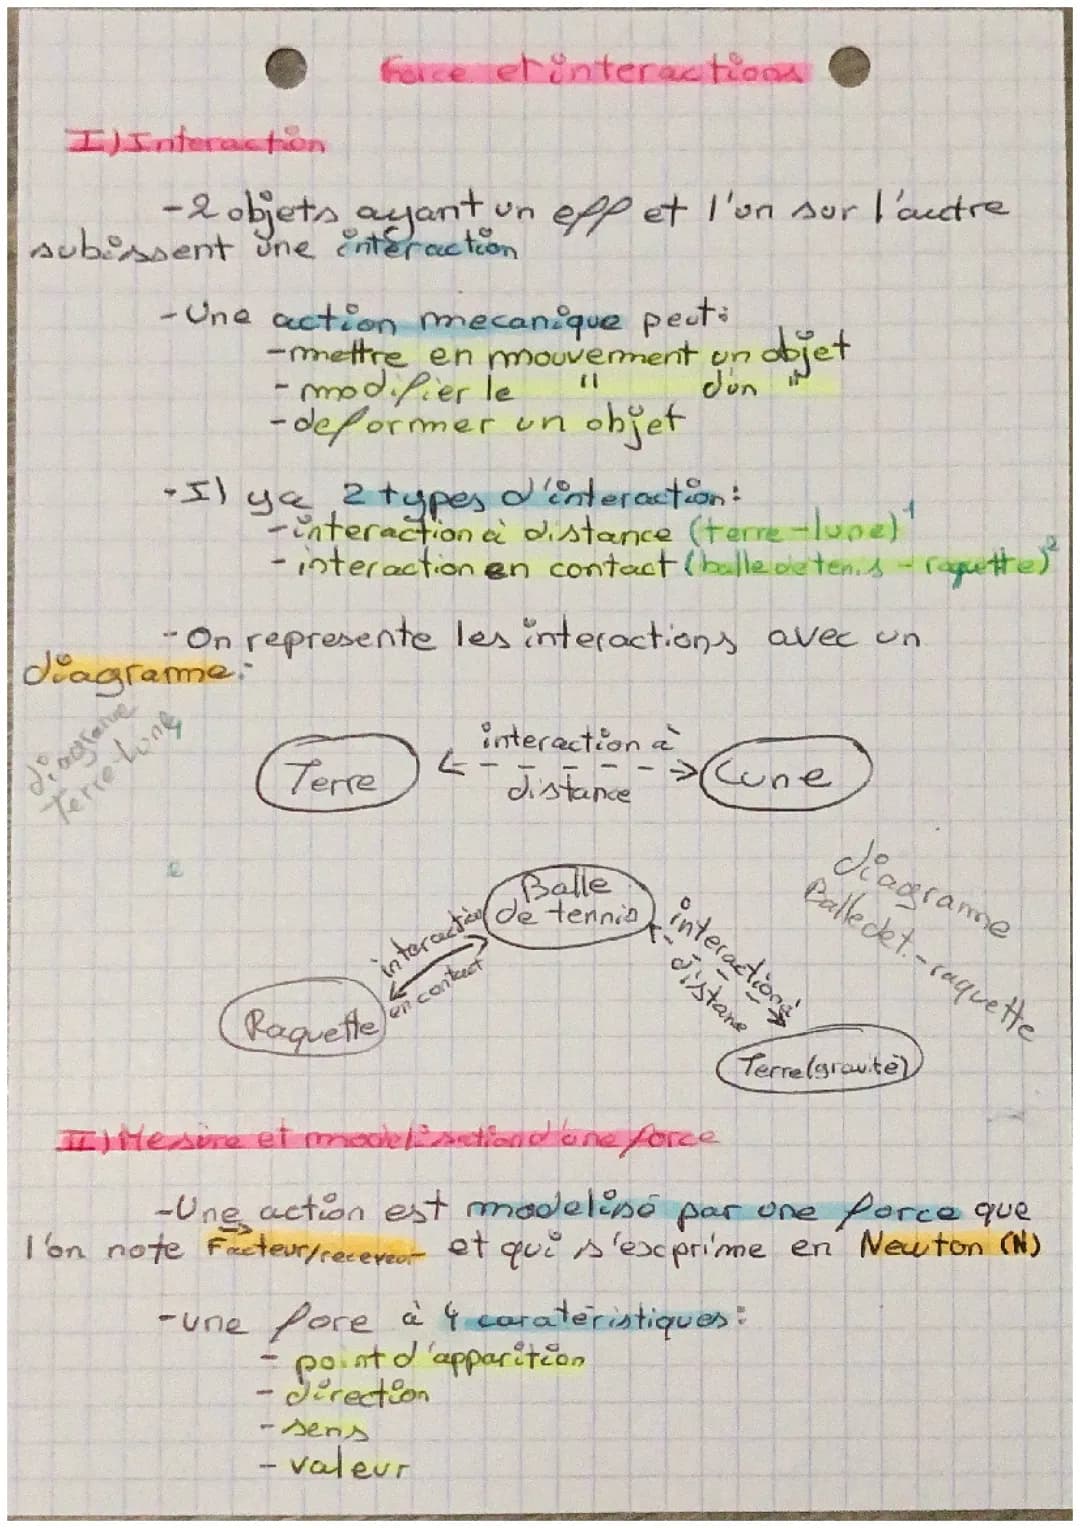 Force et interactions
I) Interaction
-2 objets ayant un eff et l'un sur l'autre
subissent une interaction
-Une action mecanique peut:
-mettre en mouvement un objet
-modifier le " d'un "
-deformer un objet
-Il ya 2 types d'interaction:
-interaction à distance (terre-lune)¹
-interaction en contact (balle de tenis - raquette)²
-On represente les interactions avec un
diagramme:
diagramme
Terre-Lune
interaction à
Terre
Lune
distance
diagramme
Balle de t.-raquette
Balle
de tennis
interaction
en contact
interaction à
distane
Raquette
Terre (gravité)
II) Mesure et modelisation d'une force
-Une action est modelisé par une force que
l'on note Facteur/receveur et qui s'exprime en Newton (N)
-une fore à 4 caratéristiques:
-point d'apparition
-direction
-sens
-valeur